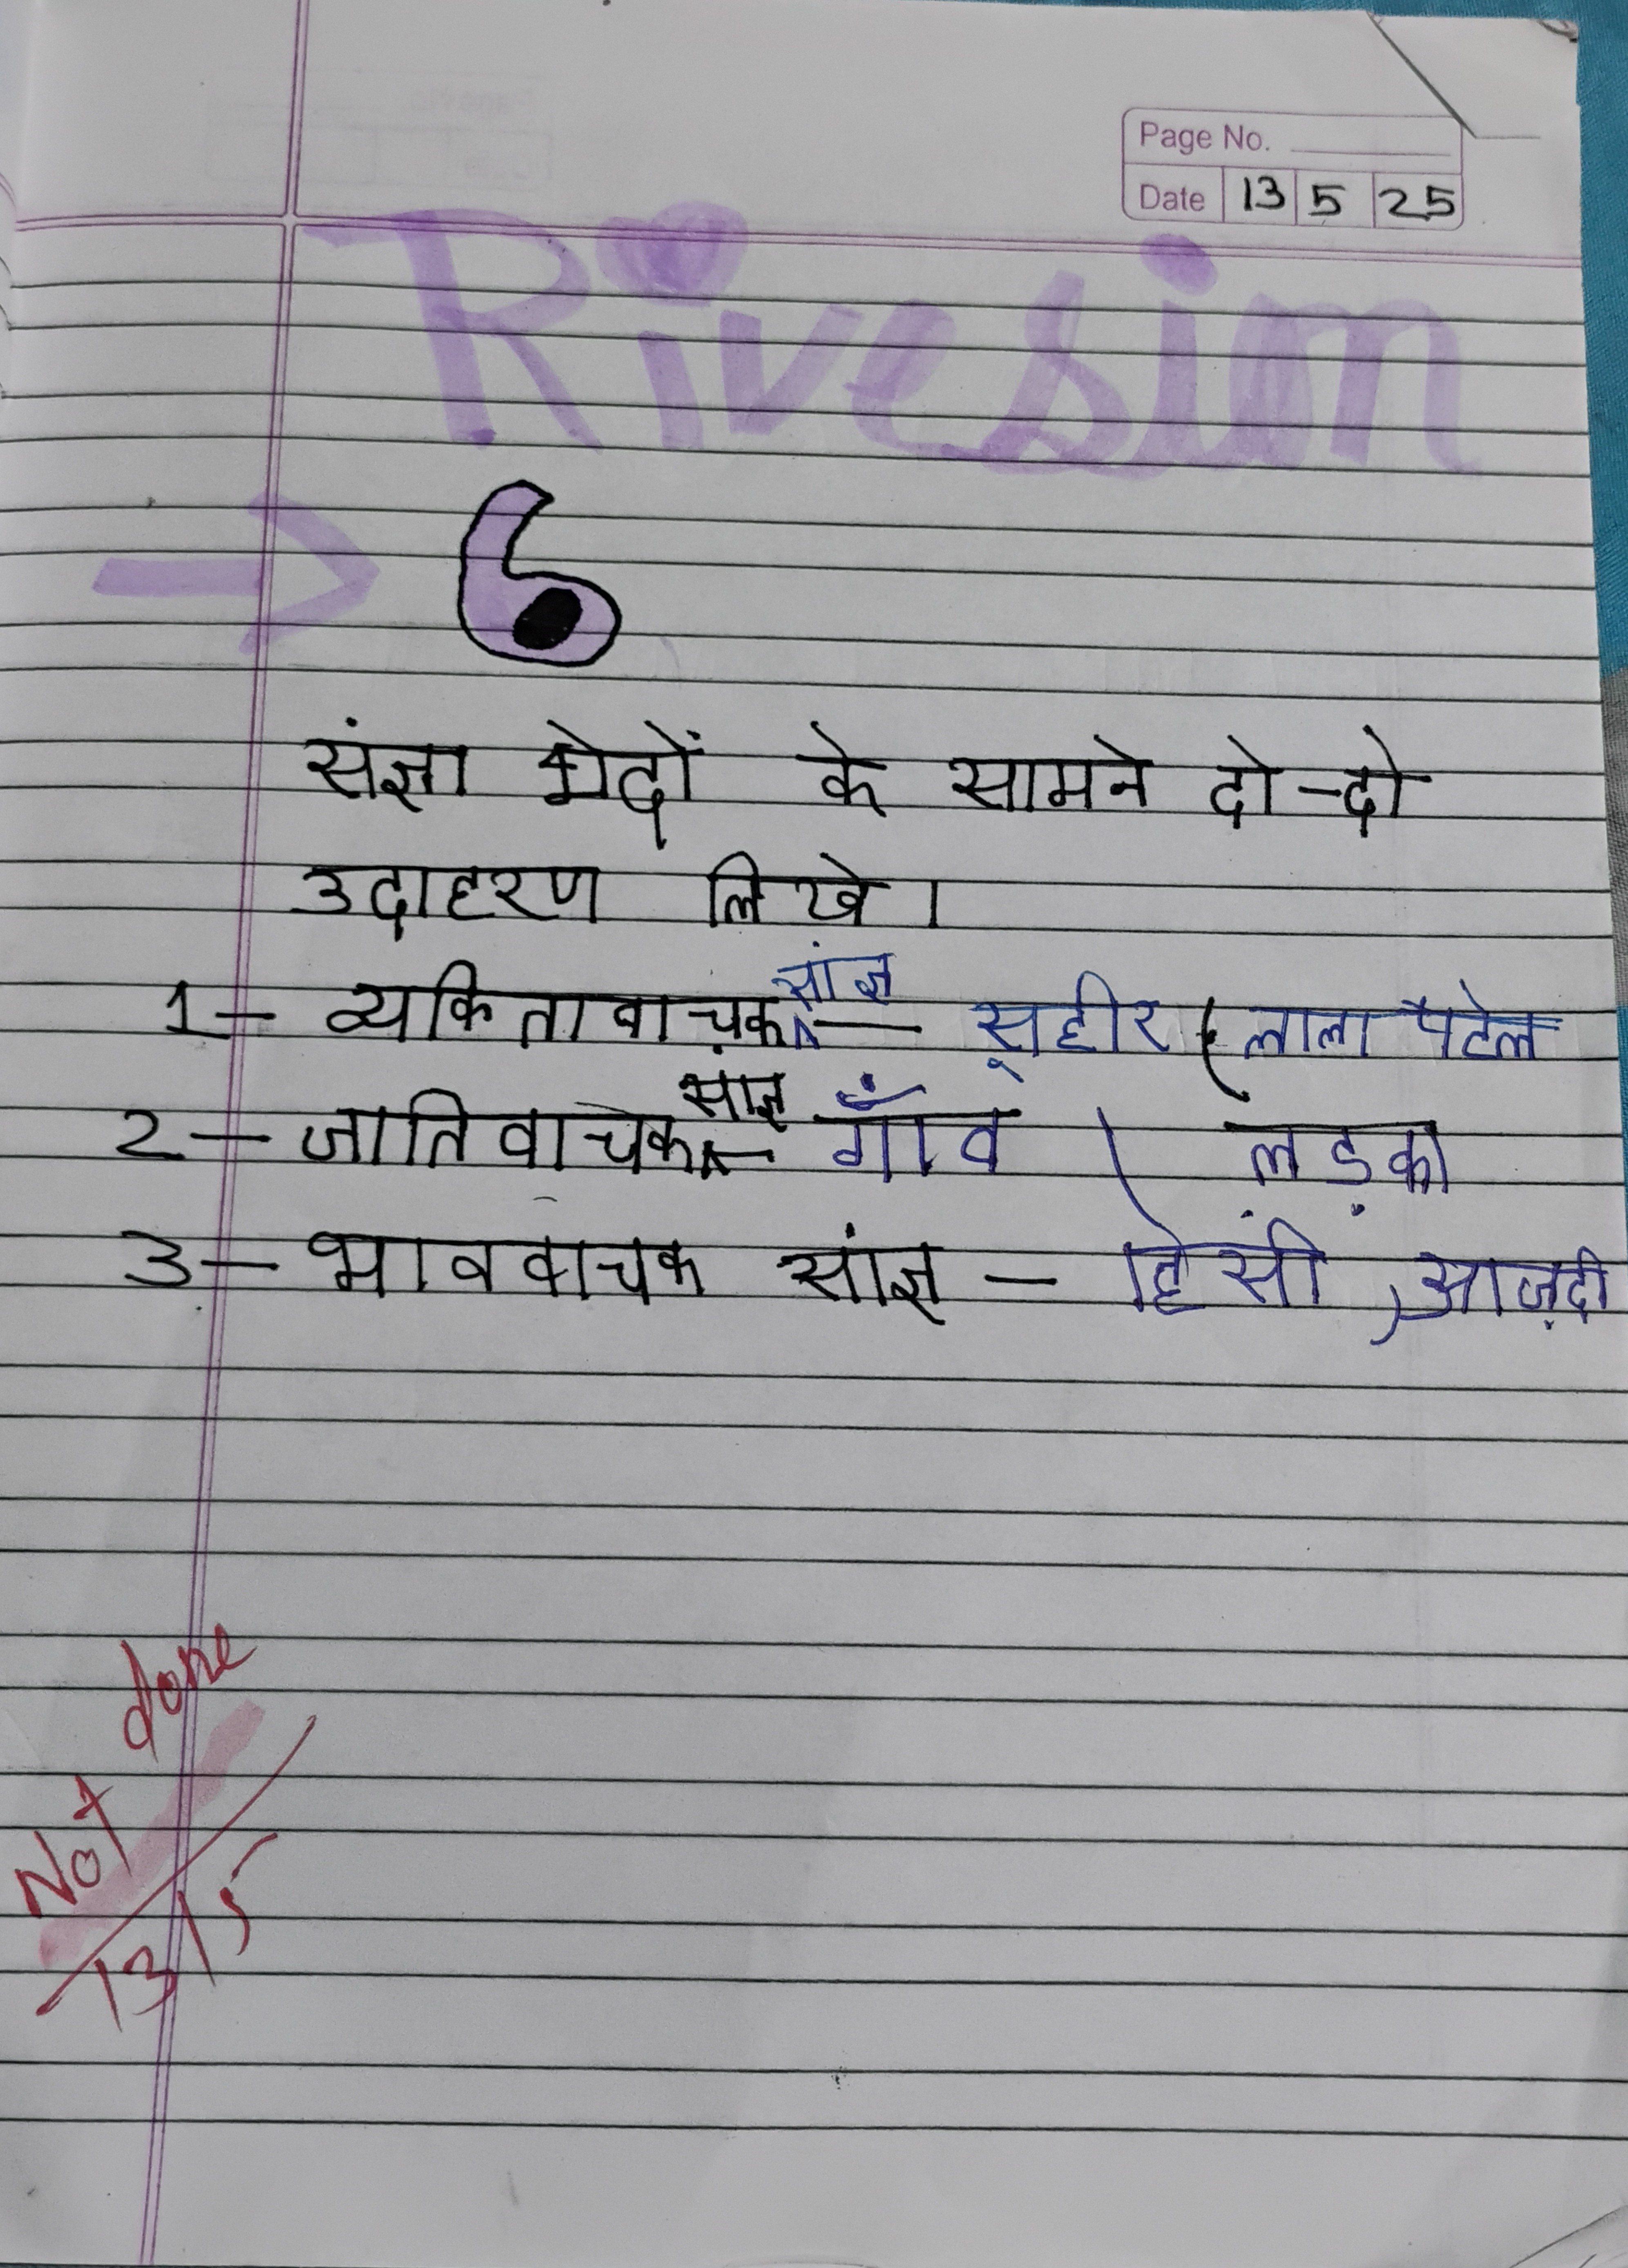 Page No.
Date 13 5 25
Rivesim
→ 6
संज्ञा भेदों के सामने दो-दो
उदाहरण लिखे।
1- व्यकितावाचक सांज्ञ — सूहीर, लाला पटेल
2- जातिवाचक सांज्ञ - गाँव, लड़का
3- भाववाचक सांज्ञ - हिंसी, आज़दी
Not done
13/5